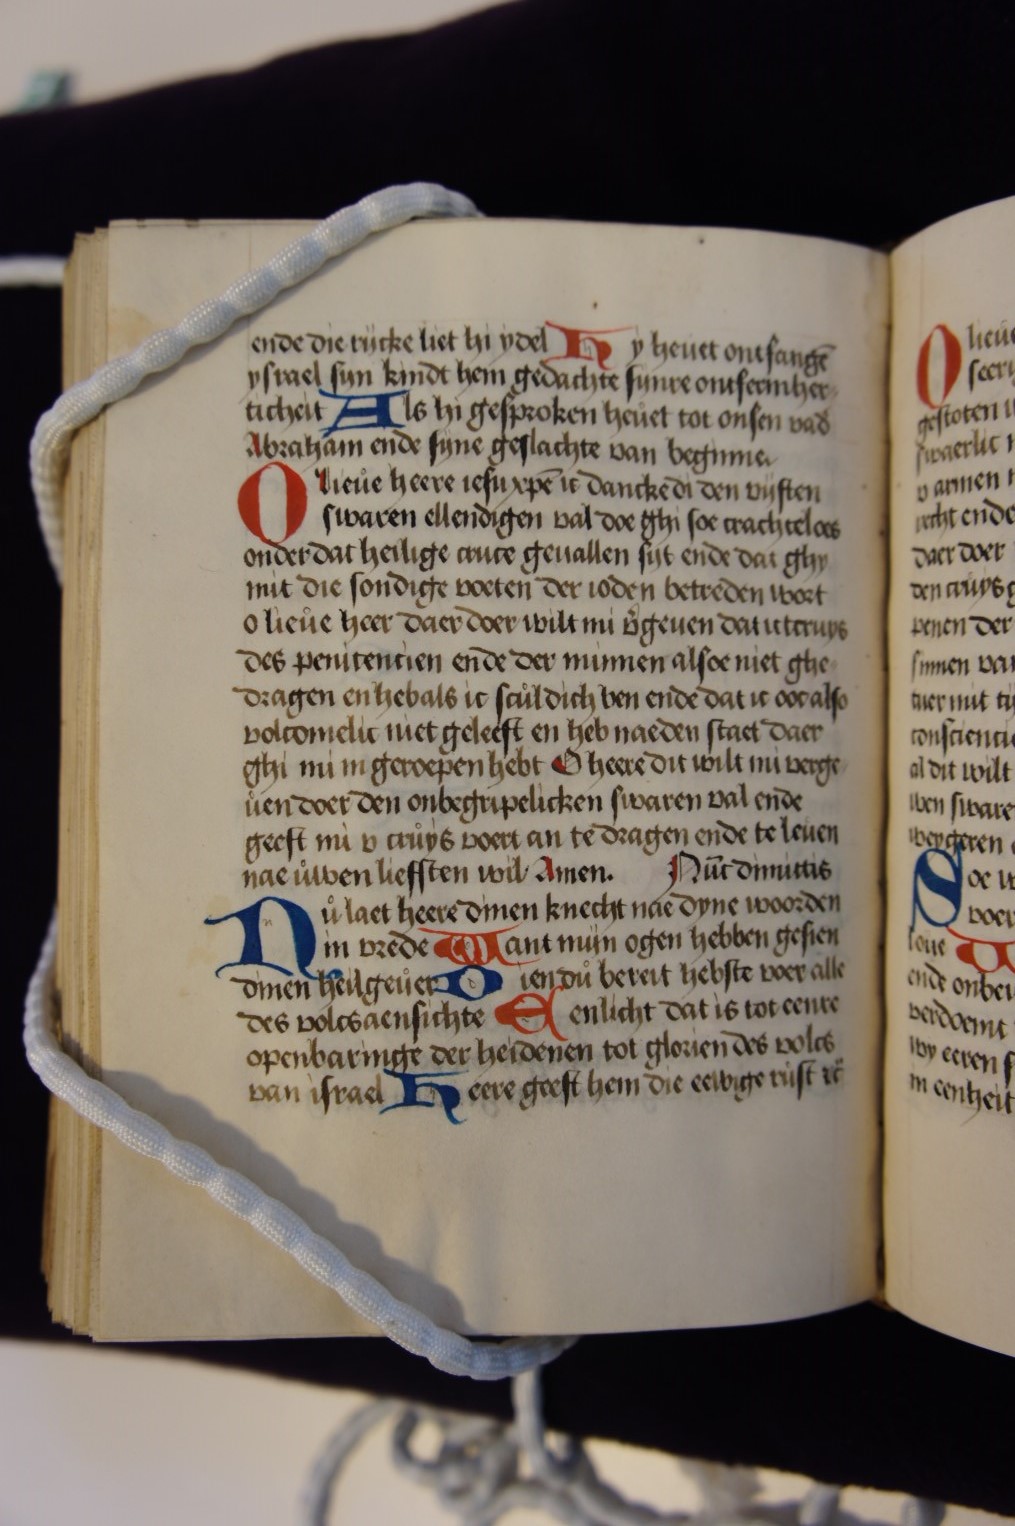 ende die rijcke liet hi ydel Hy heuet ontfangē
ysrael syn kindt hem gedachte synre ontfermher
ticheit Als hi gesproken heuet tot onsen vad
Abraham ende syne geslachte van beginne
O lieue heere iesu xpē ic dancke di den vijften
swaren ellendigen val doe ghi soe crachteloes
onder dat heilige cruce geuallen sijt ende dat ghy
mit die sondige voeten der ioden betreden wort
o lieue heer daer doer wilt mi v̄geuen dat ic tcruys
des penitencien ende der minnen alsoe niet ghe
dragen en heb als ic scŭldich ben ende dat ic oec also
volcomelic niet geleeft en heb nae den staet daer
ghi mi in geroepen hebt O heere dit wilt mi verge
ŭen doer den onbegripelicken swaren val ende
geeft mi v crŭys voert an te dragen ende te leuen
nae ŭwen liefften wil Amen. Nūc dimittis
Nŭ laet heere dinen knecht nae dyne woorden
in vrede Want mijn ogen hebben gesien
dinen heilgeŭer Dien dŭ bereit hebste voer alle
des volcs aensichte Een licht dat is tot eenre
openbaringe der heidenen tot glorien des volcs
van israel Heere geeft hem die eewige rŭst ꝛc̄
O lieŭe
gestoten
swaerlic
v armen
recht ende
daer doer
den crŭys
penen der
sinnen van
conscienti
al dit wilt
ŭwen sware
weygeren
Soe
voer
loue
ende onbe
verdoemt
wy eeren
in eenheit